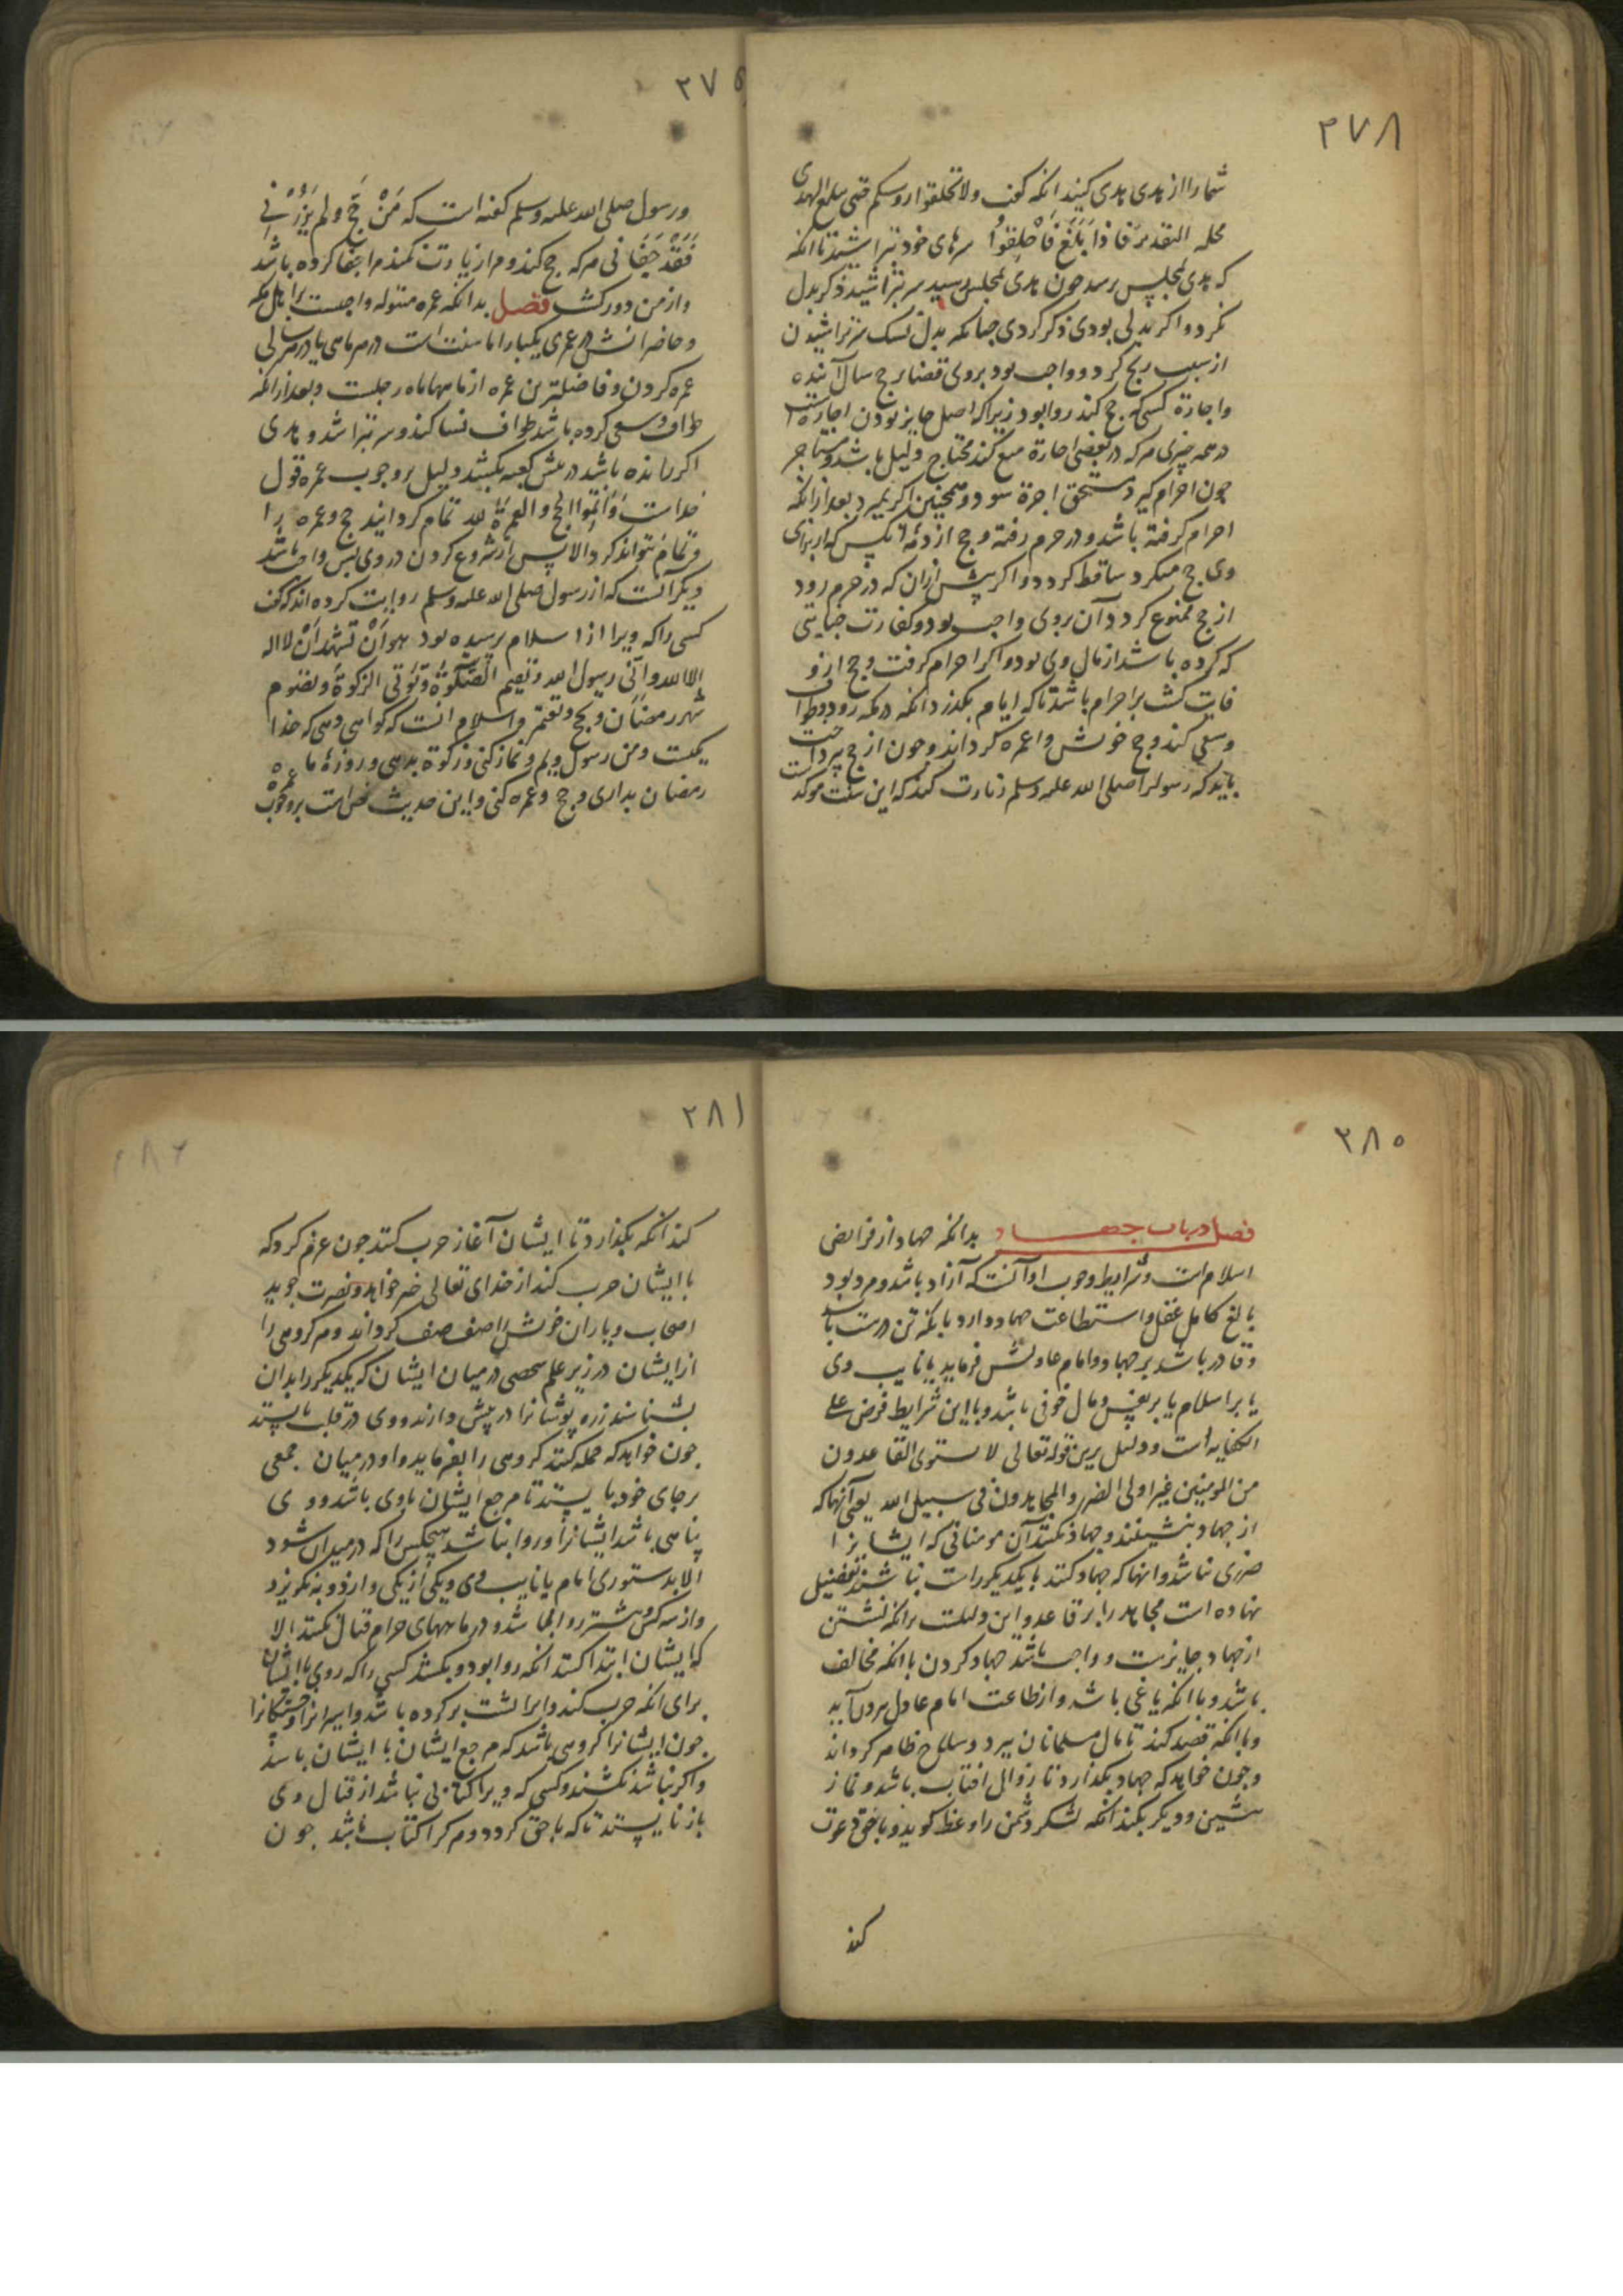 ٢٧٨
شما را از هدی هدی کنید انکه کفت ولا تحلقوا روسکم حتی یبلغ الهدی
محله التقدیر فاذا بَلَغَ فَاحلِقوُا سرهای خود نتراشید تا انکه
که هدی بمجلش برسد چون هدی بمجلش رسید سر بتراشید ذکر بدل
نکرد و اکر بدلی بودی ذکر کردی جنانکه بدل نسک سر تراشیدن
از سبب رنج کرد و واجب بود بروی قضا بر حج سال آینده
واجازة کسی که حج کند روا بود زیرا که اصل جایز بودن اجازتست
در همه چیزی هر که در بعضی اجازة منع کند محتاج دلیل باشد و مستاجر
چون احرام کیرد مستحق اجرة شود و همچنین اکر بمیرد بعد از انکه
احرام کرفته باشد و در حرم رفته و حج از ذمّهٔ انکس که از برای
وی حج میکرد ساقط کردد و اکر پیش از ان که در حرم رود
از حج ممنوع کردد آن بروی واجب بود و کفارت جنایتی
که کرده باشد از مال وی بود و اکر احرام کرفت و حج ازو
فایت کشت بر احرام باشد تا که ایام بکذرد انکه در مکه رود و طواف
وسعی کند و حج خویش وا عمره کرداند و چون از حج پرداخت
باید که رسول را صلی الله علیه وسلم زیارت کند که این سنت موکد است
٢٧٩
ورسول صلی الله علیه وسلم کفته است که مَنْ حَجَّ ولم یَزُرْنی
فَقَدْ جَفَانی هر که حج کند و مرا زیارت نکند مرا جفا کرده باشد
واز من دور کشت فصل بدانکه عمره مبتوله واجبست بر اهل مکه
وحاضرانش در عمری یکبار اما سنت است در هر ماهی یا در هر سالی
عمره کردن وفاضلترین عمره از ماهها ماه رجبست وبعد از انکه
طواف وسعی کرده باشد طواف نسا کند و سر بتراشد و هدی
اکر رانده باشد در پیش کعبه بکشد و دلیل بر وجوب عمره قول
خداست وَاَتِمّوا الحج والعمرةَ لله تمام کردانید حج وعمره را
وتمام نتواند کرد الا پس از شروع کردن در وی پس واجب باشد
دیکر آنست که از رسول صلی الله علیه وسلم روایت کرده اند که کفت
کسی را که ویرا از اسلام پرسیده بود هو اَنْ تَشهَدَ اَنْ لا اله
الا الله وانّی رسول الله وتقیم الصَّلوةَ وتؤتی الزکوةَ وتصوم
شهر رمضان وتحج وتعتمر واسلام انست که کواهی دهی که خدا
یکیست ومن رسول ویم ونماز کنی وزکوة بدهی وروزهٔ ماه
رمضان بداری وحج وعمره کنی واین حدیث نص است بر وجوب عمره
٢٨٠
فصل در باب جهاد بدانکه جهاد از فرایض
اسلام است وشرایط وجوب او آنست که آزاد باشد و مرد بود
بالغ کامل عقل واستطاعت جهاد دارد بانکه تن درست باشد
وقادر باشد بر جهاد وامام عادلش فرماید یا نایب وی
یا بر اسلام یا بر نفس ومال خوفی باشد وبا این شرایط فرض علی
الکفایه است ودلیل برین قوله تعالی لا یستوی القاعدون
من المومنین غیر اولی الضرر والمجاهدون فی سبیل الله یعنی آنها که
از جهاد بنشینند و جهاد نکنند آن مومنانی که ایشانرا
ضرری نباشد وانها که جهاد کنند با یکدیکر راست نباشند تفضیل
نهاده است مجاهد را بر قاعد واین دلیلست برانکه نشستن
از جهاد جایزست وواجب باشد جهاد کردن با انکه مخالف
باشد وبا انکه یاغی باشد واز طاعت امام عادل بیرون آید
وبا انکه قصد کند تا مال مسلمانان ببرد وسلاح ظاهر کرداند
وچون خواهد که جهاد بکذارد تا زوال افتاب باشد ونماز
پیشین ودیکر بکند انکه لشکر دشمن را وعظ کوید وباحق دعوت
کند
٢٨١
کند انکه بکذارد تا ایشان آغاز حرب کنند چون عزم کرد که
با ایشان حرب کند از خدای تعالی خیر خواهد ونصرت جوید
اصحاب ویاران خویش را صف صف کرداند وهر کروهی را
از ایشان در زیر علم شخصی در میان ایشان که یکدیکر را بدان
بشناسند زره پوشانرا در پیش دارند ووی در قلب بایستد
چون خواهد که حمله کنند کروهی را بفرماید واو در میان جمعی
بر جای خود بایستد تا مرجع ایشان باوی باشد ووی
پناهی باشد ایشانرا وروا نباشد هیچکس را که در میدان شود
الا بدستوری امام یا نایب وی ویکی از یکی وا زدو نه بکریزد
واز سه کس وبیشتر روا باشد ودر ماههای حرام قتال نکنند الا
که ایشان ابتدا کنند انکه روا بود وبکشند کسی را که روی با ایشان
برای انکه حرب کند ویرا پشت بر کرده باشد واسیرانرا وخستکانرا
چون ایشانرا کروهی باشد که مرجع ایشان با ایشان باشد
واکر نباشد نکشند وکسی که ویرا کتابی نباشد از قتال وی
باز نایستند تا که باحق کردد وهر کرا کتاب باشد چون